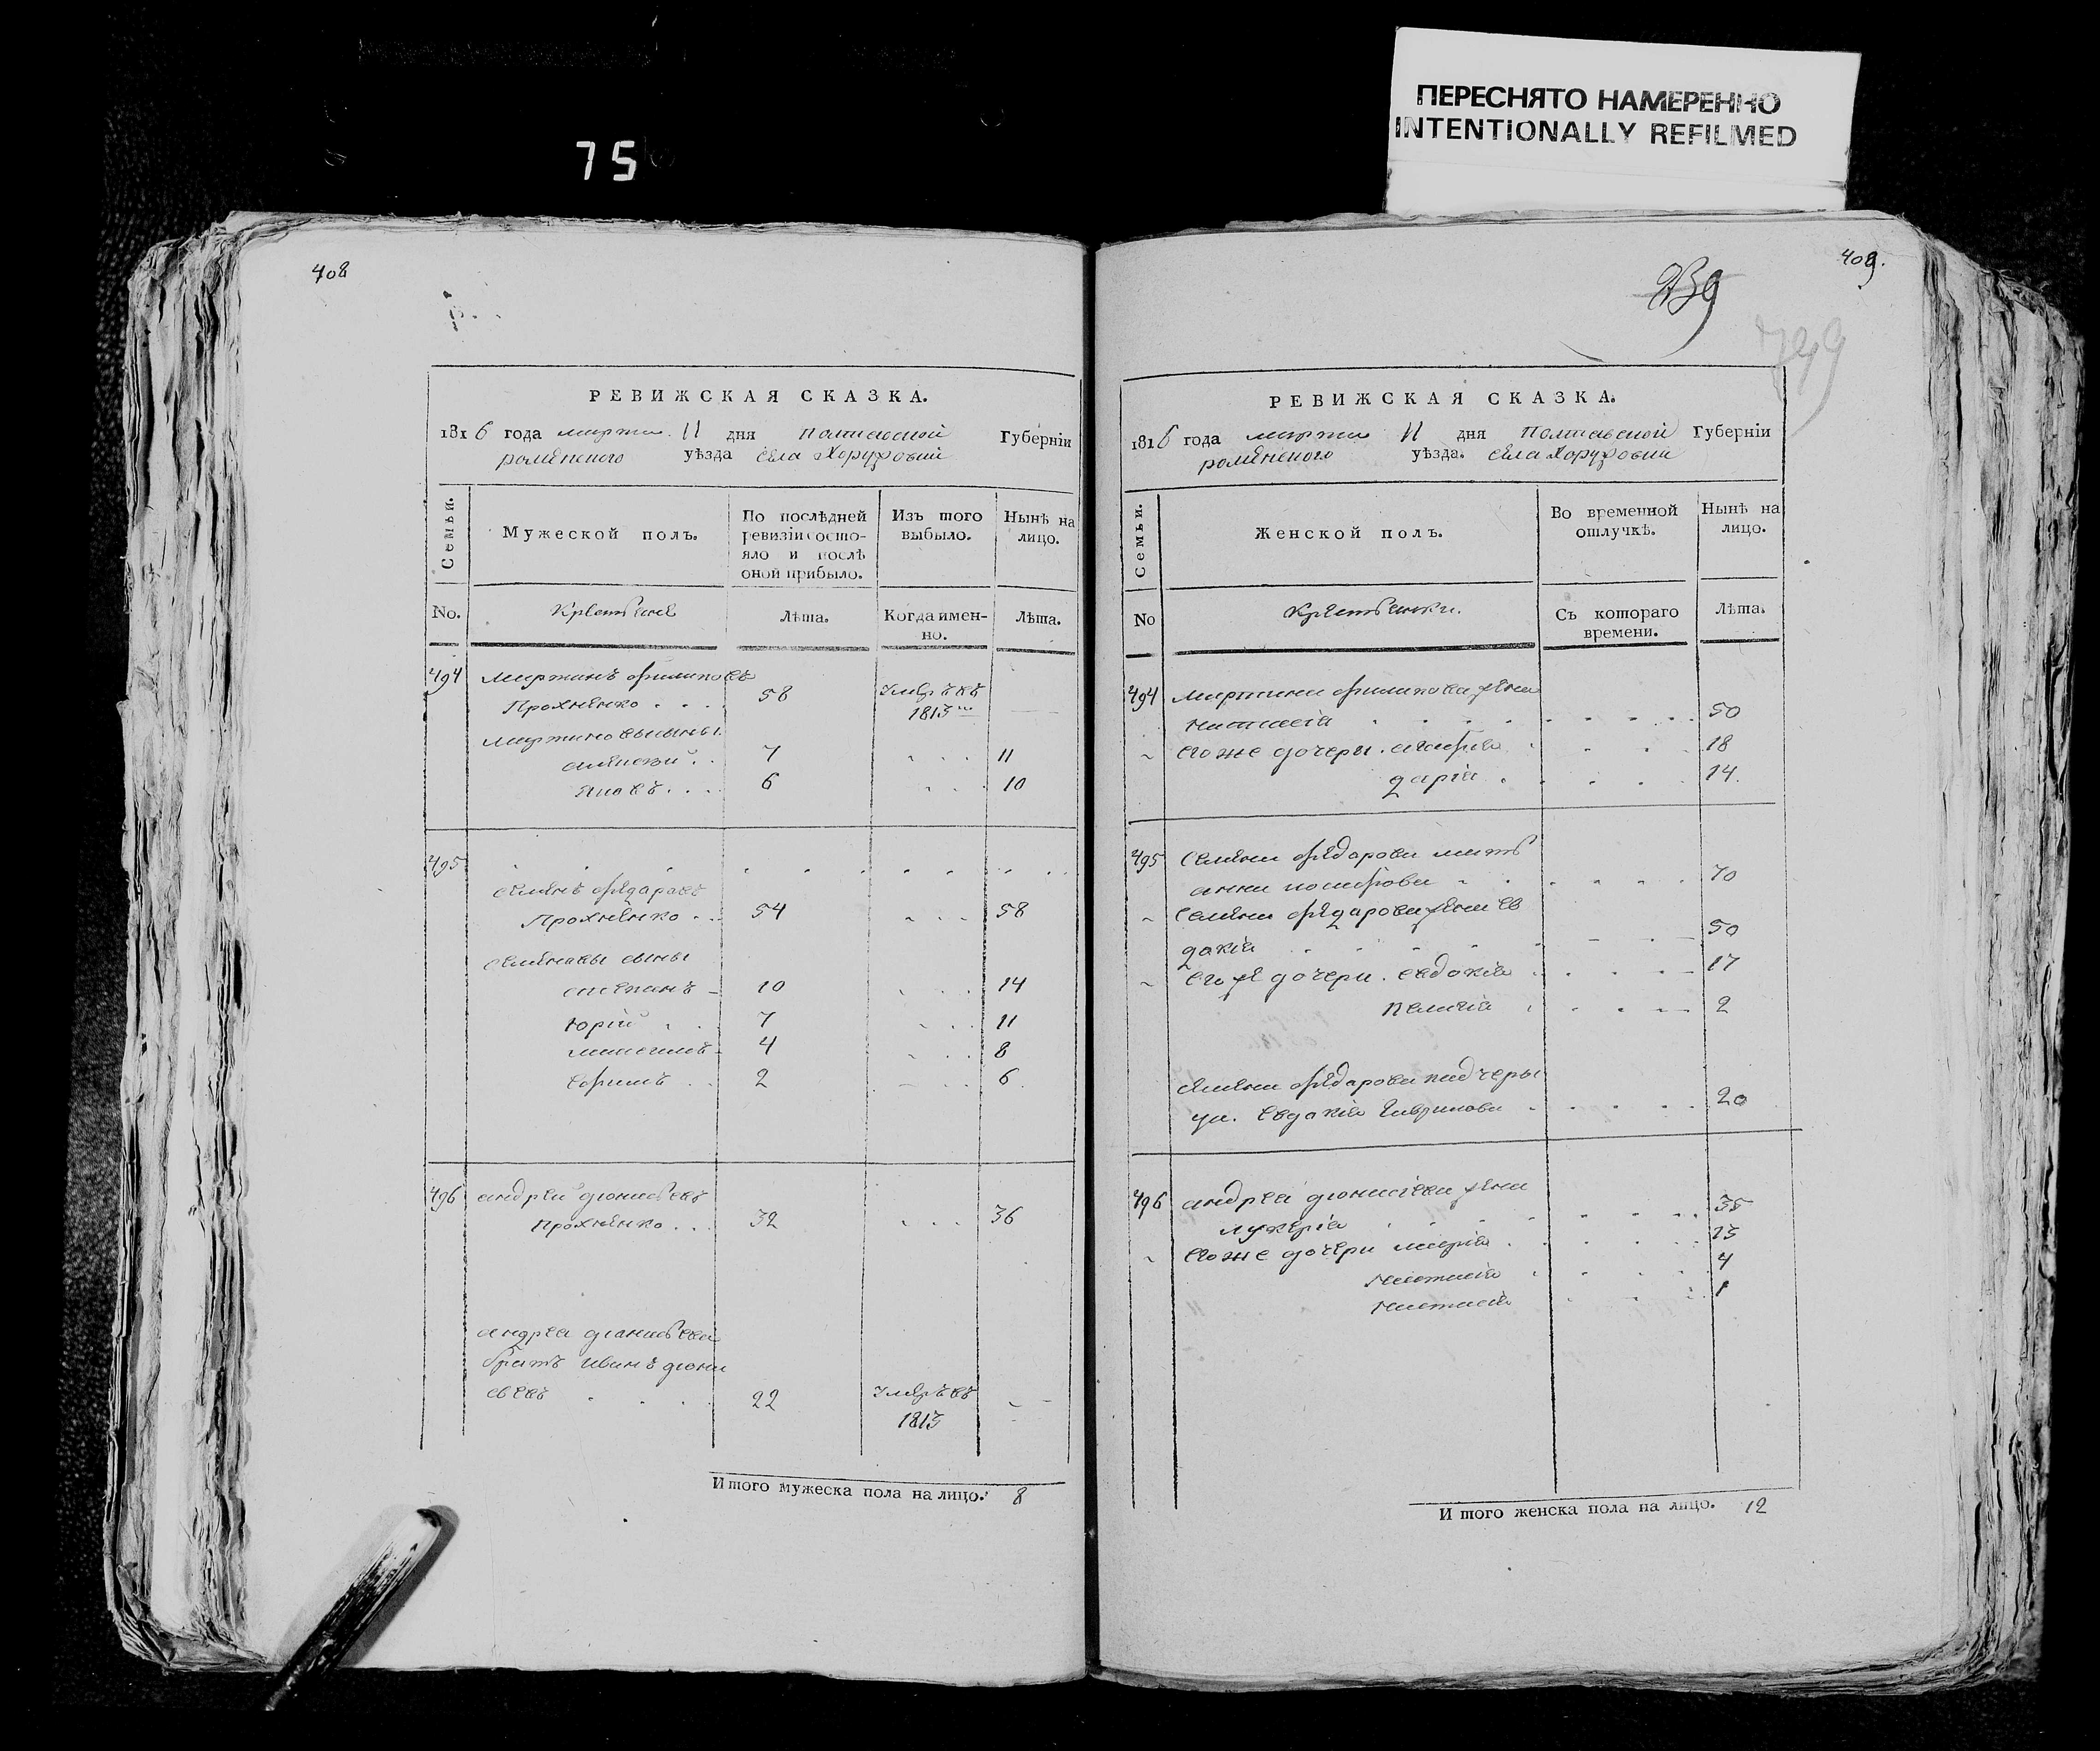 ПЕРЕСНЯТО НАМЕРЕННО
INTENTIONALLY REFILMED
75
408
РЕВИЖСКАЯ СКАЗКА.
1816 года марта 11 дня Полтавской Губерніи
роменского уѣзда села Хоружовки
Семьи.
Мужеской полъ.
По послѣдней ревизіи состояло и послѣ оной прибыло.
Изъ того выбыло.
Нынѣ на лицо.
No.
Крестьяне
Лѣта.
Когда именно.
Лѣта.
494 мартинъ филиповъ
Прохненко . . . 58 умеръ въ 1813
мартиновы сыны
алексѣй . . 7 . . . 11
яковъ . . . 6 . . . 10
495
семенъ федаровъ
Прохненко . . 54 . . . 58
семеновы сыны
степанъ 10 . . . 14
Юрій . . 7 . . . 11
4 . . . 8
ефимъ . . 2 . . . 6
496 андрей дионисьевъ
Прохненко . . . 32 . . . 36
андрея дианисьева
братъ иванъ диони
сьевъ . . . . 22 умеръ въ
1813
Итого мужеска пола на лицо. 8
409.
239
799
РЕВИЖСКАЯ СКАЗКА.
1816 года марта 11 дня Полтавской Губерніи
роменского уѣзда. села Хоружовки
Семьи.
Женской полъ.
Во временной отлучкѣ.
Нынѣ на лицо.
No
Крестьянки.
Съ котораго времени.
Лѣта.
494 мартина филипова жена
наталія 50
его же дочери. 18
дарія 14.
495 Семена федарова мать
анна иосифова 70
Семена федарова жена ев
докія 50
его же дочери. евдокія 17
Пелагія 2
семена федарова падчеры
ца. евдакія гаврилова 20
496 андрея дионисіева жена
лукерія 35
его же дочери марія 13
настасія 4
настасія 1
Итого женска пола на лицо. 12